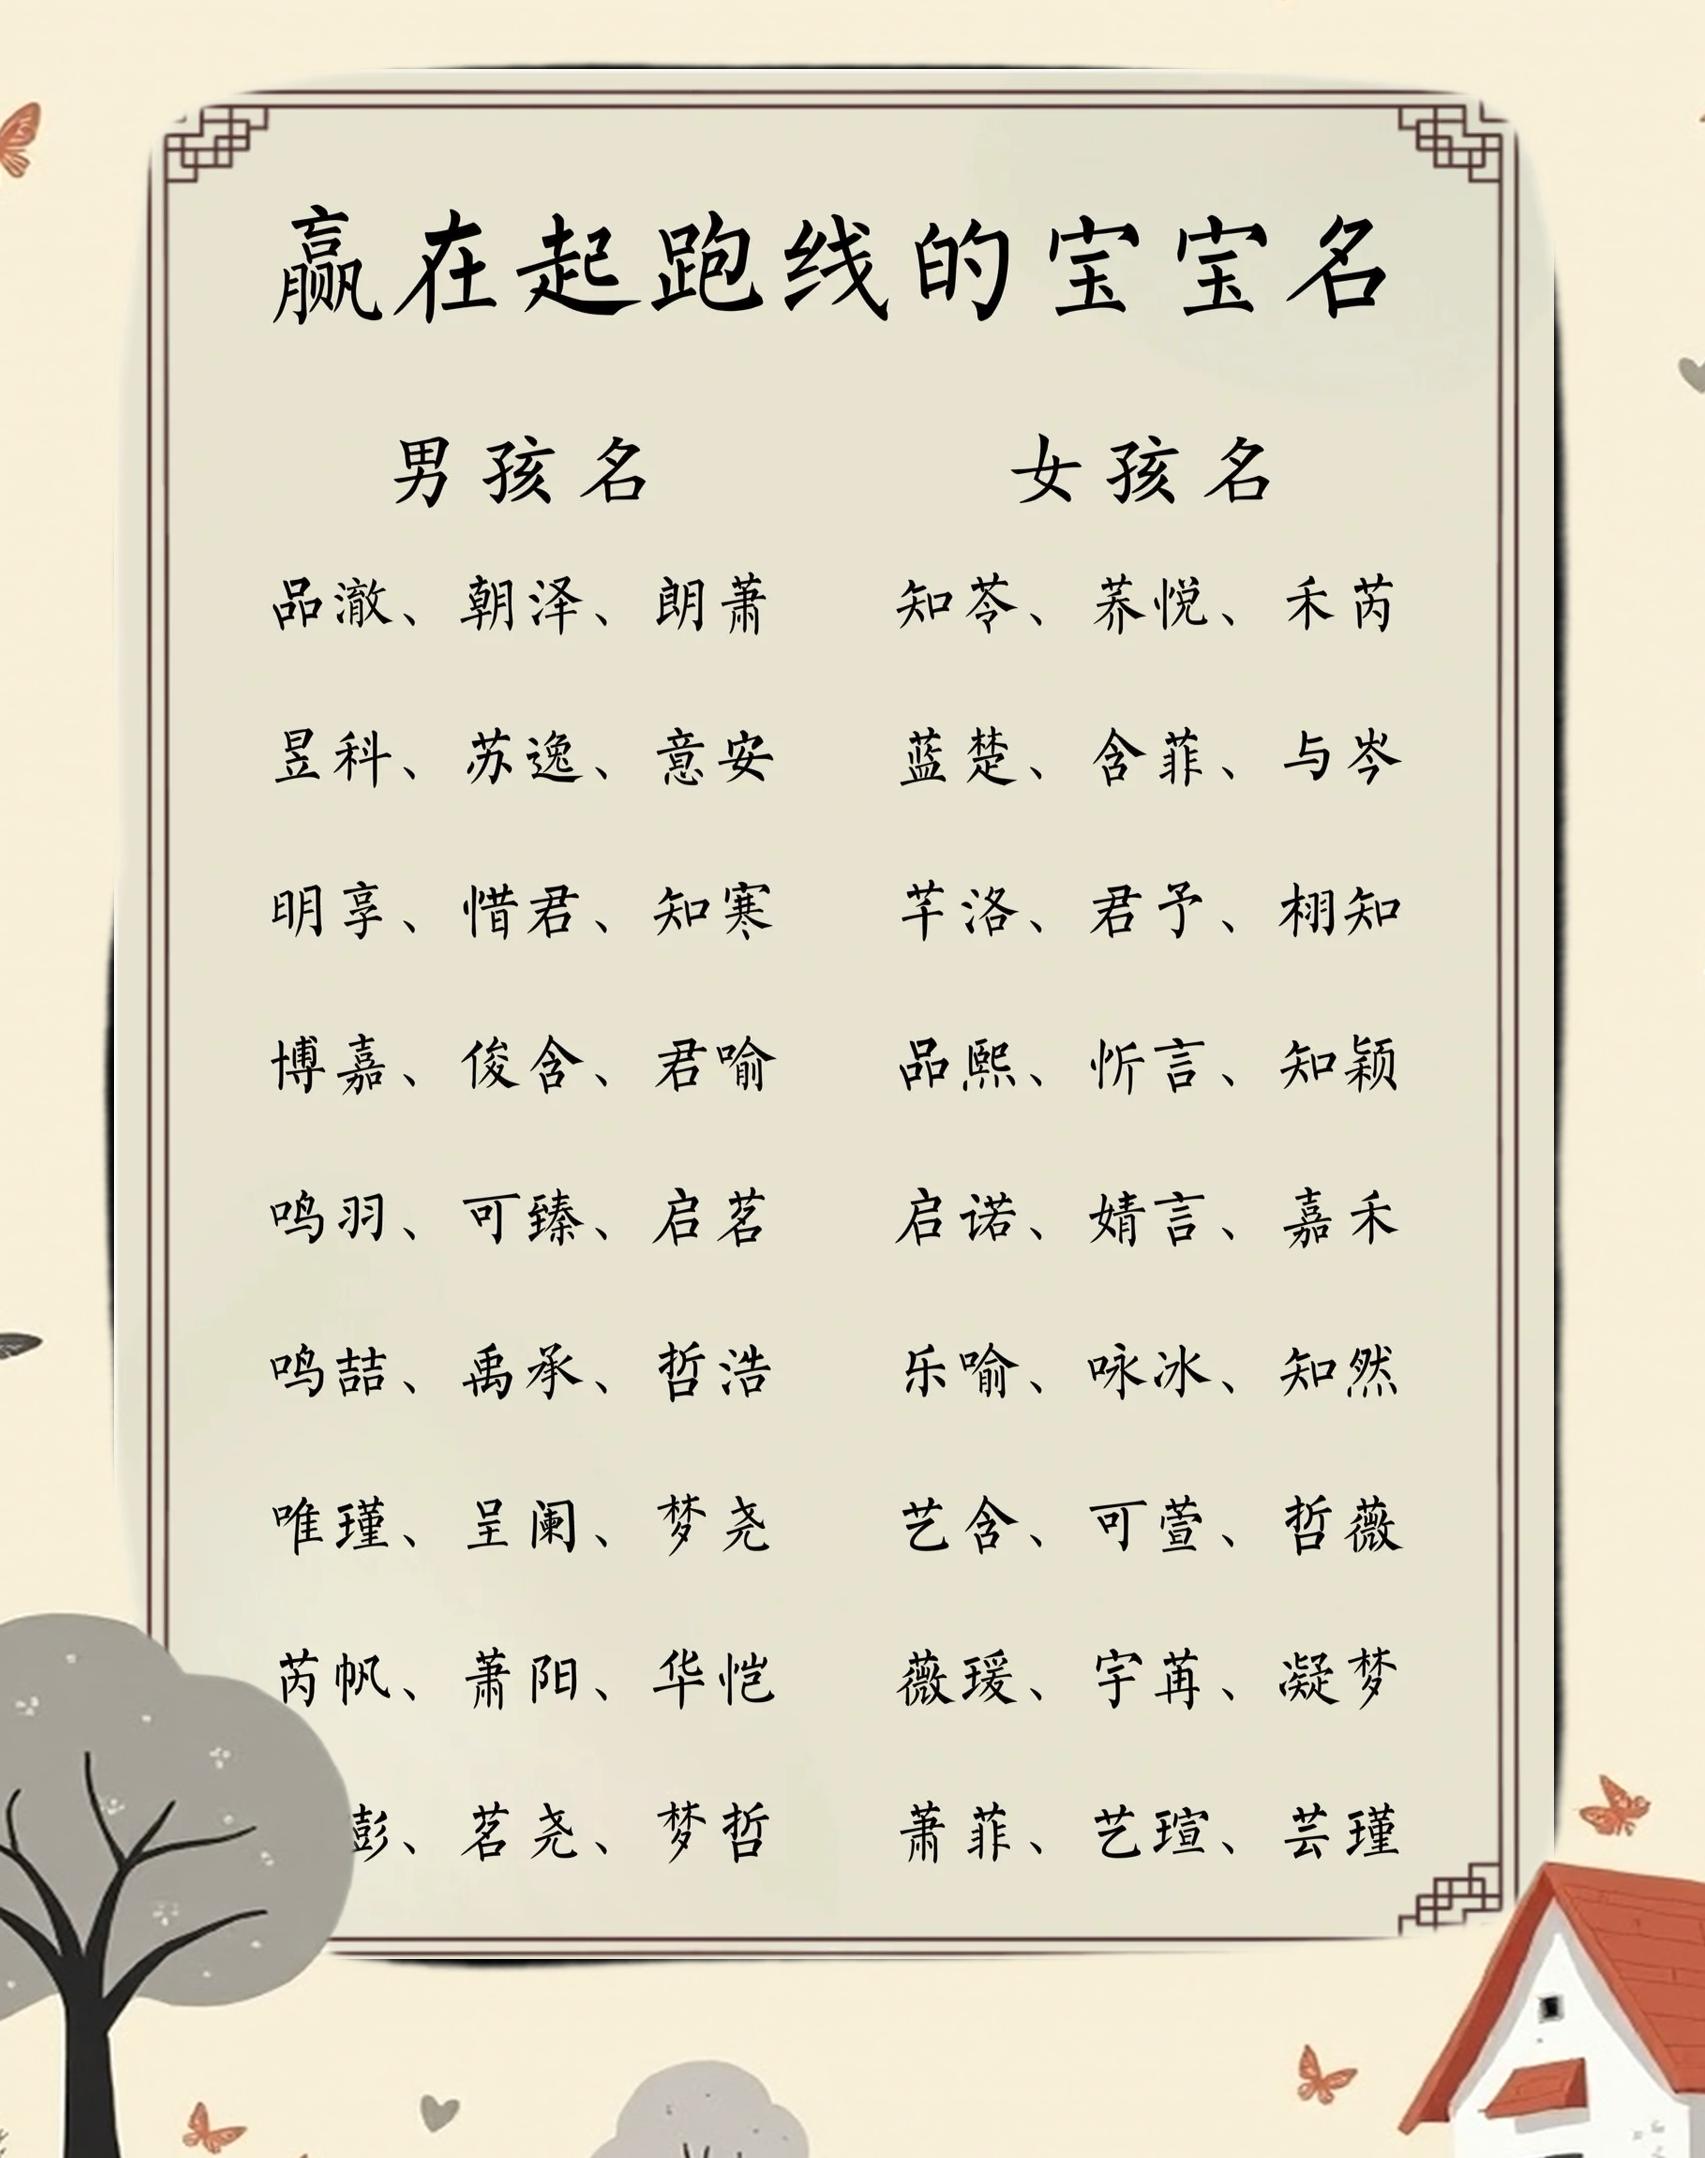 赢在起跑线的宝宝名
男孩名 女孩名
品澈、朝泽、朗萧 知苓、荞悦、禾芮
昱科、苏逸、意安 蓝楚、含菲、与岑
明享、惜君、知寒 芊洛、君予、栩知
博嘉、俊含、君喻 品熙、忻言、知颖
鸣羽、可臻、启茗 启诺、婧言、嘉禾
鸣喆、禹承、哲浩 乐喻、咏冰、知然
唯瑾、呈阑、梦尧 艺含、可萱、哲薇
芮帆、萧阳、华恺 薇瑗、宇苒、凝梦
彭、茗尧、梦哲 萧菲、艺瑄、芸瑾